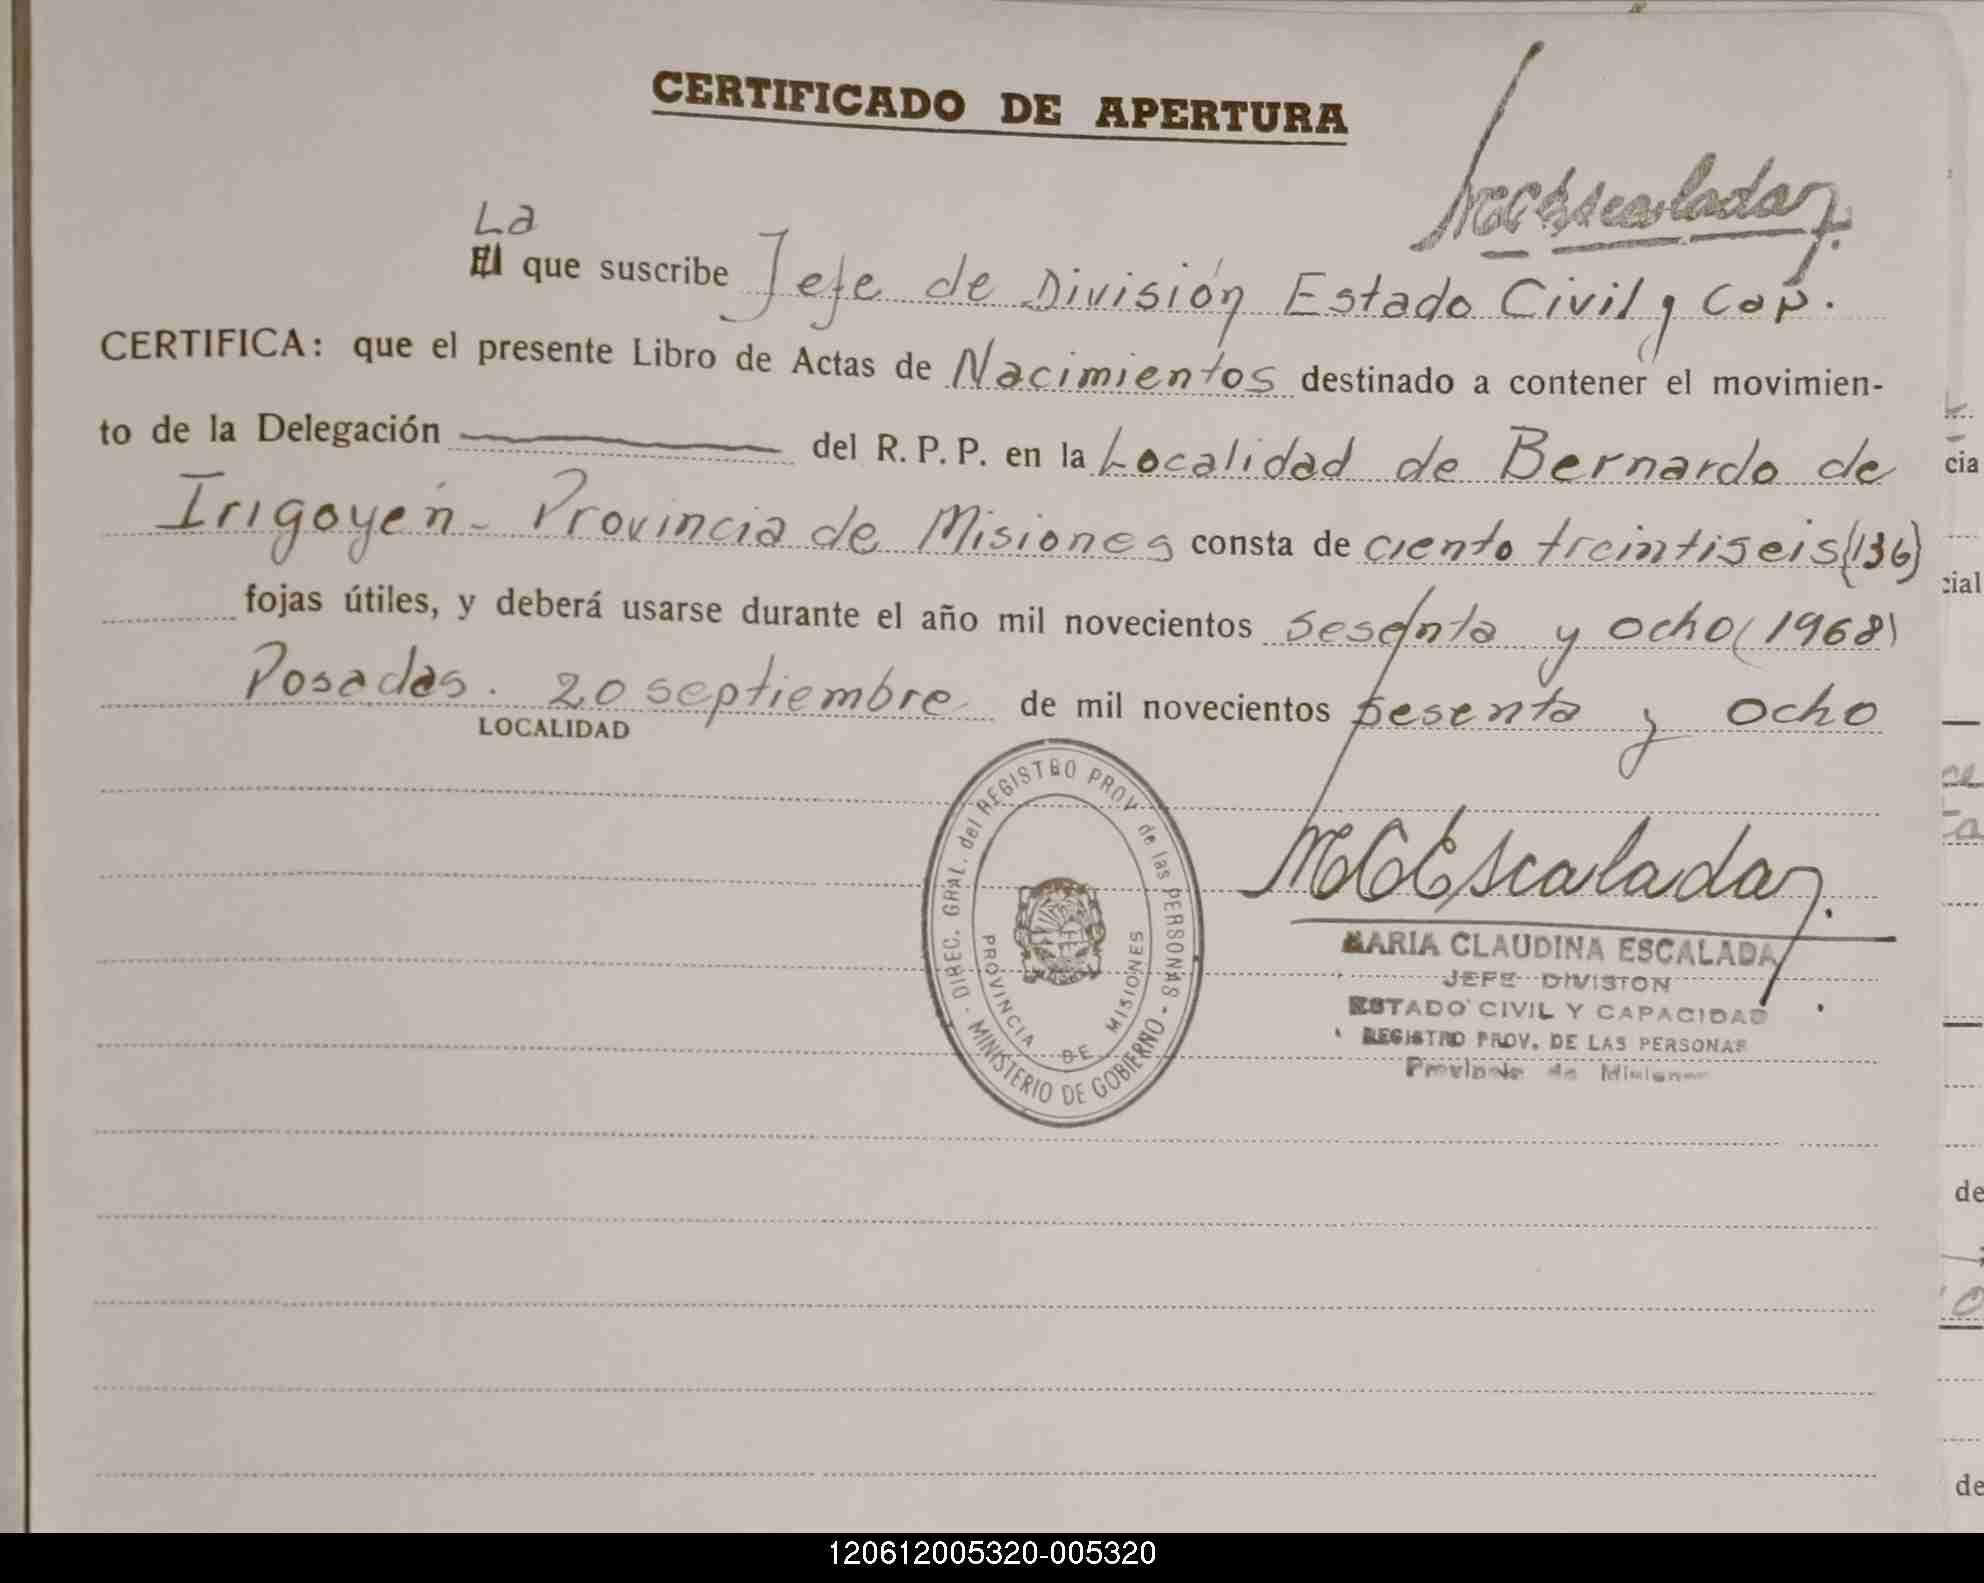 CERTIFICADO DE APERTURA
MCEscalada
La
El que suscribe Jefe de División Estado Civil y Cap.
CERTIFICA: que el presente Libro de Actas de Nacimientos destinado a contener el movimien-
to de la Delegación del R. P. P. en la Localidad de Bernardo de
Irigoyen - Provincia de Misiones consta de ciento treintiseis (136)
fojas útiles, y deberá usarse durante el año mil novecientos sesenta y ocho (1968)
Posadas. 20 septiembre de mil novecientos sesenta y ocho
LOCALIDAD
DIREC. GRAL. del REGISTRO PROV de las PERSONAS - MINISTERIO DE GOBIERNO -
PROVINCIA DE MISIONES
MCEscalada
MARIA CLAUDINA ESCALADA
JEFE DIVISION
ESTADO CIVIL Y CAPACIDAD
REGISTRO PROV. DE LAS PERSONAS
Provincia de Misiones
cia
cial
de
de
120612005320-005320